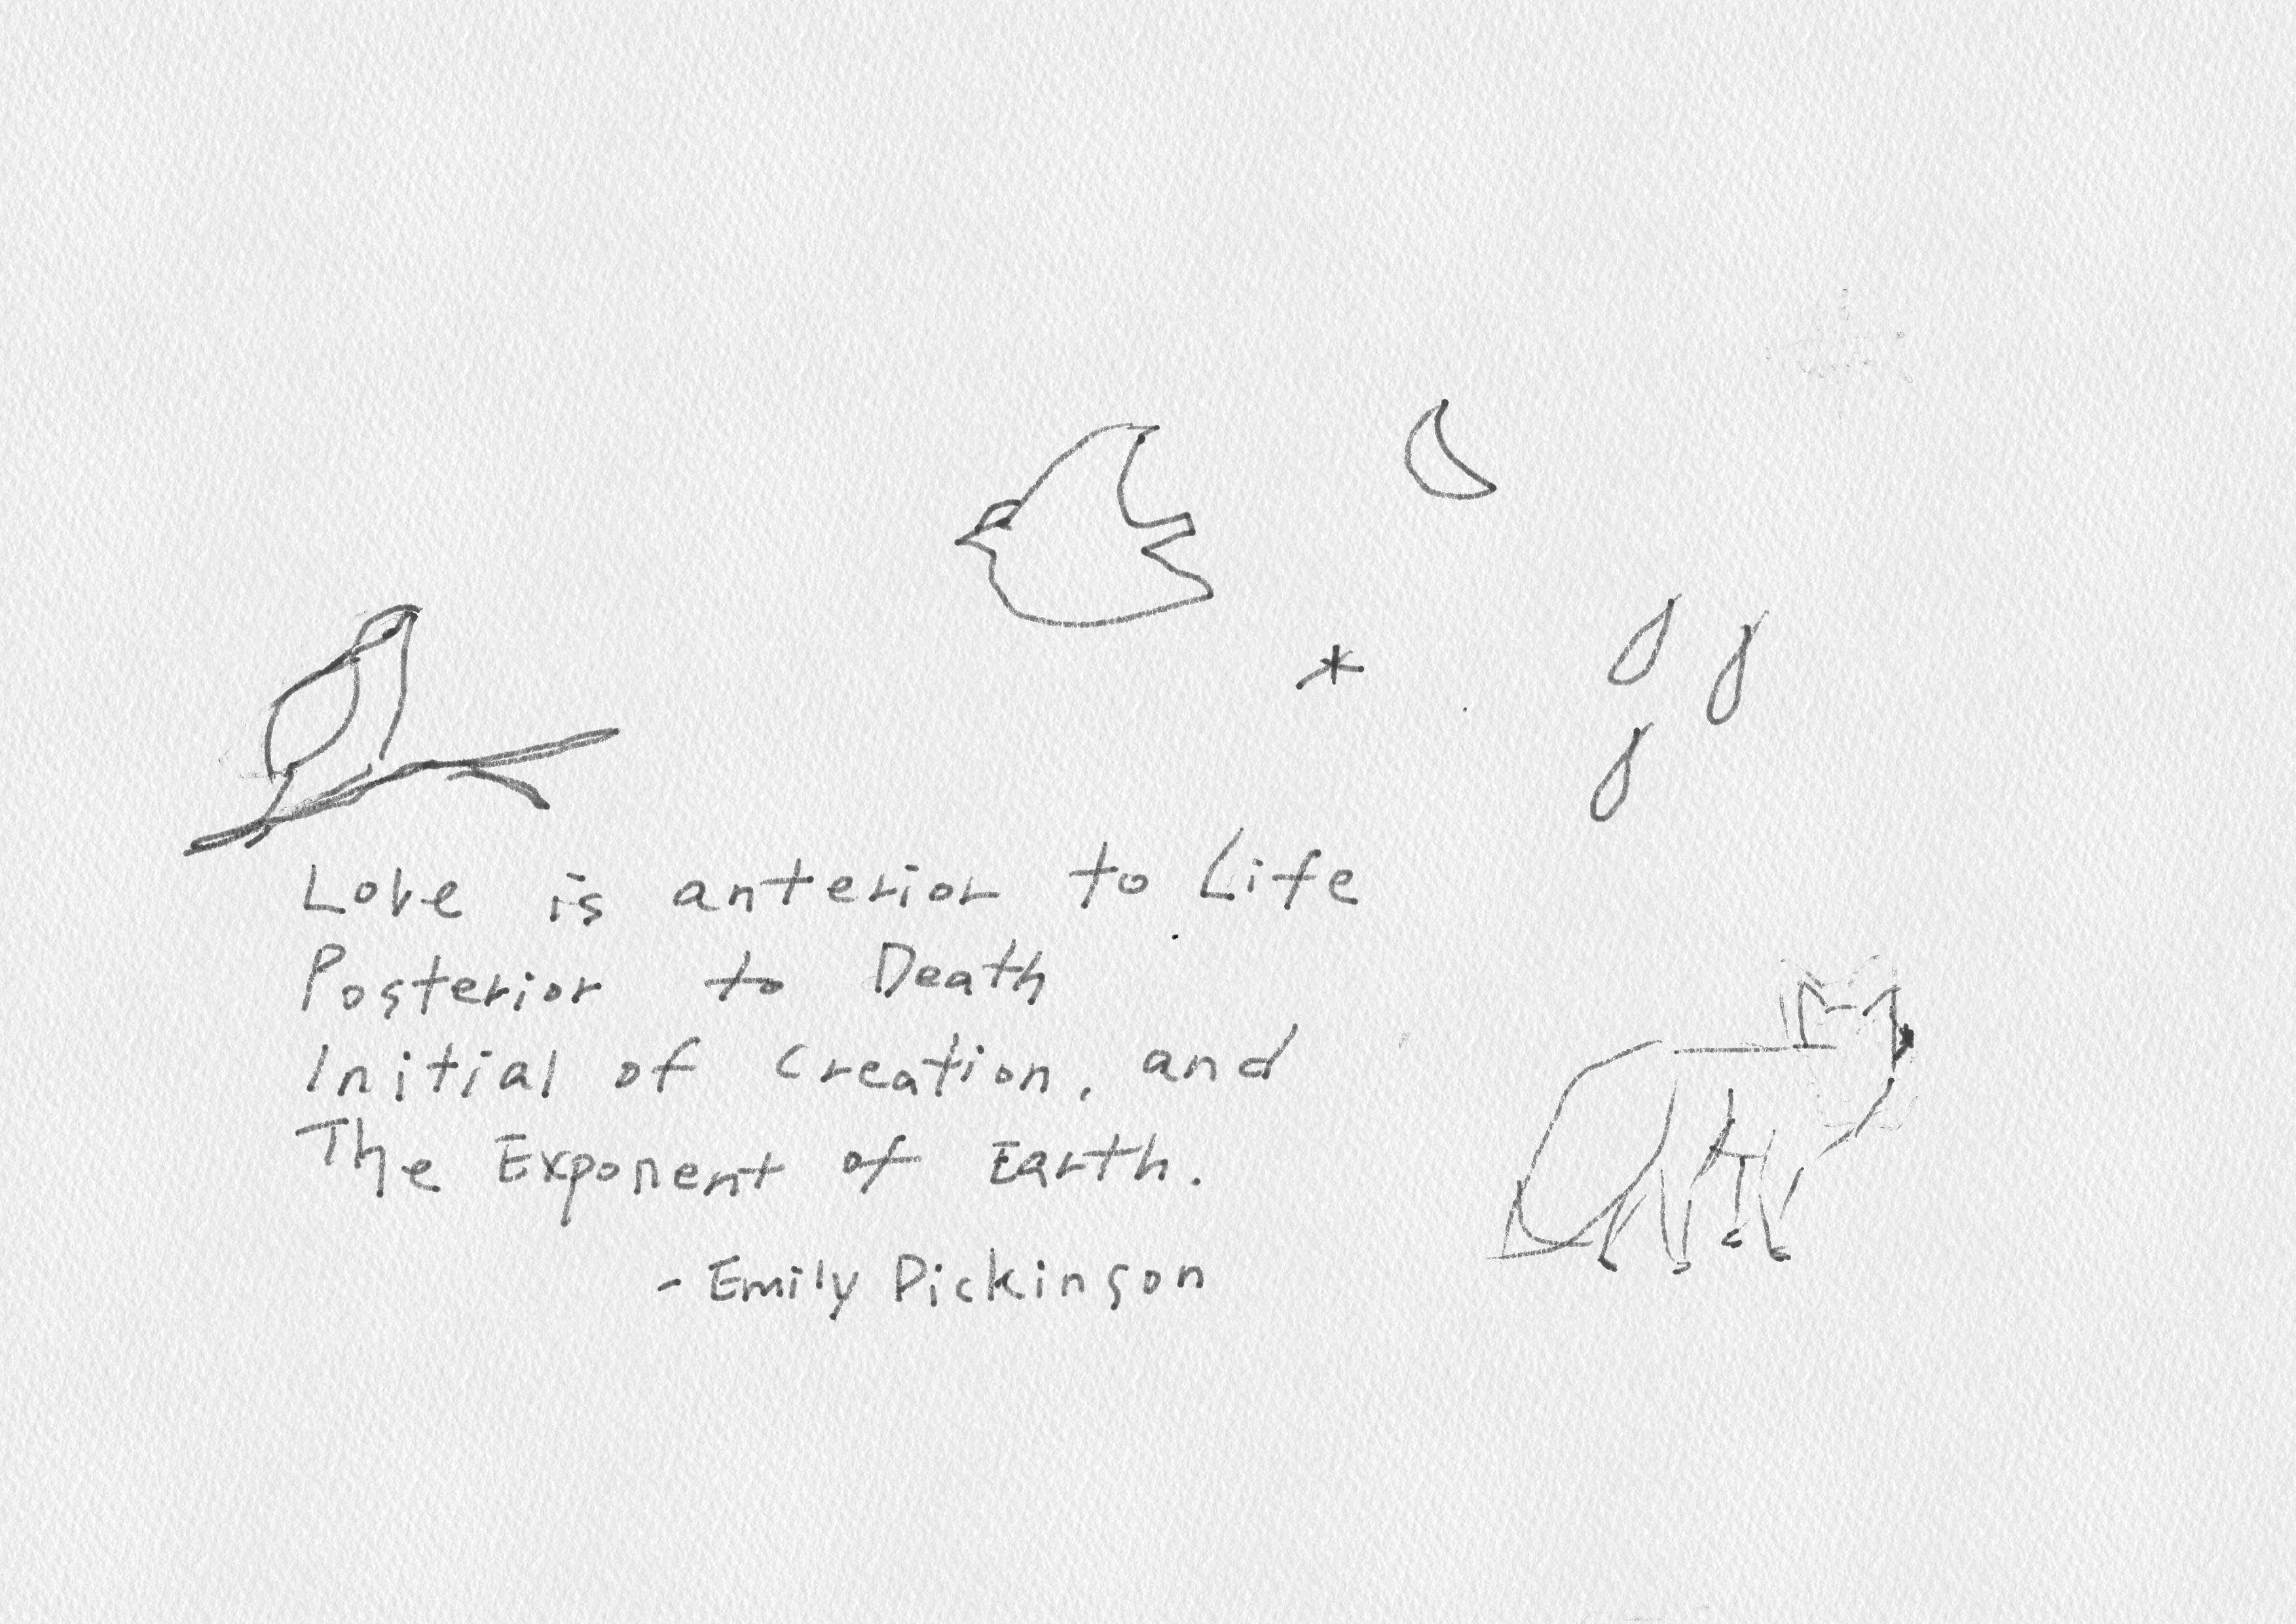 Love is anterior to Life
Posterior to Death
Initial of Creation, and
The Exponent of Earth.
- Emily Dickinson